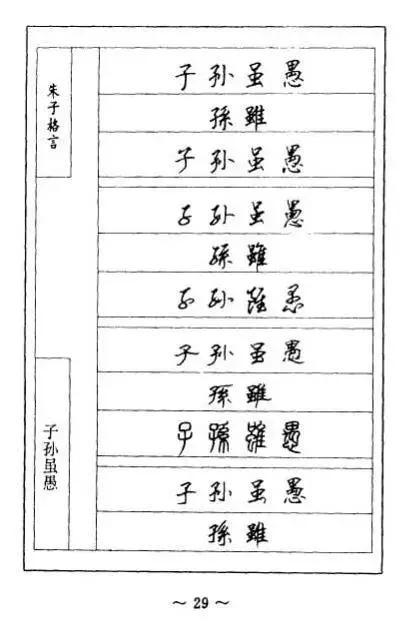 朱子格言
子孙虽愚
子孙虽愚
孫雖
子孙虽愚
子孙虽愚
孫雖
子孙雖愚
子孙虽愚
孫雖
子孫雖愚
子孙虽愚
孫雖
~ 29 ~